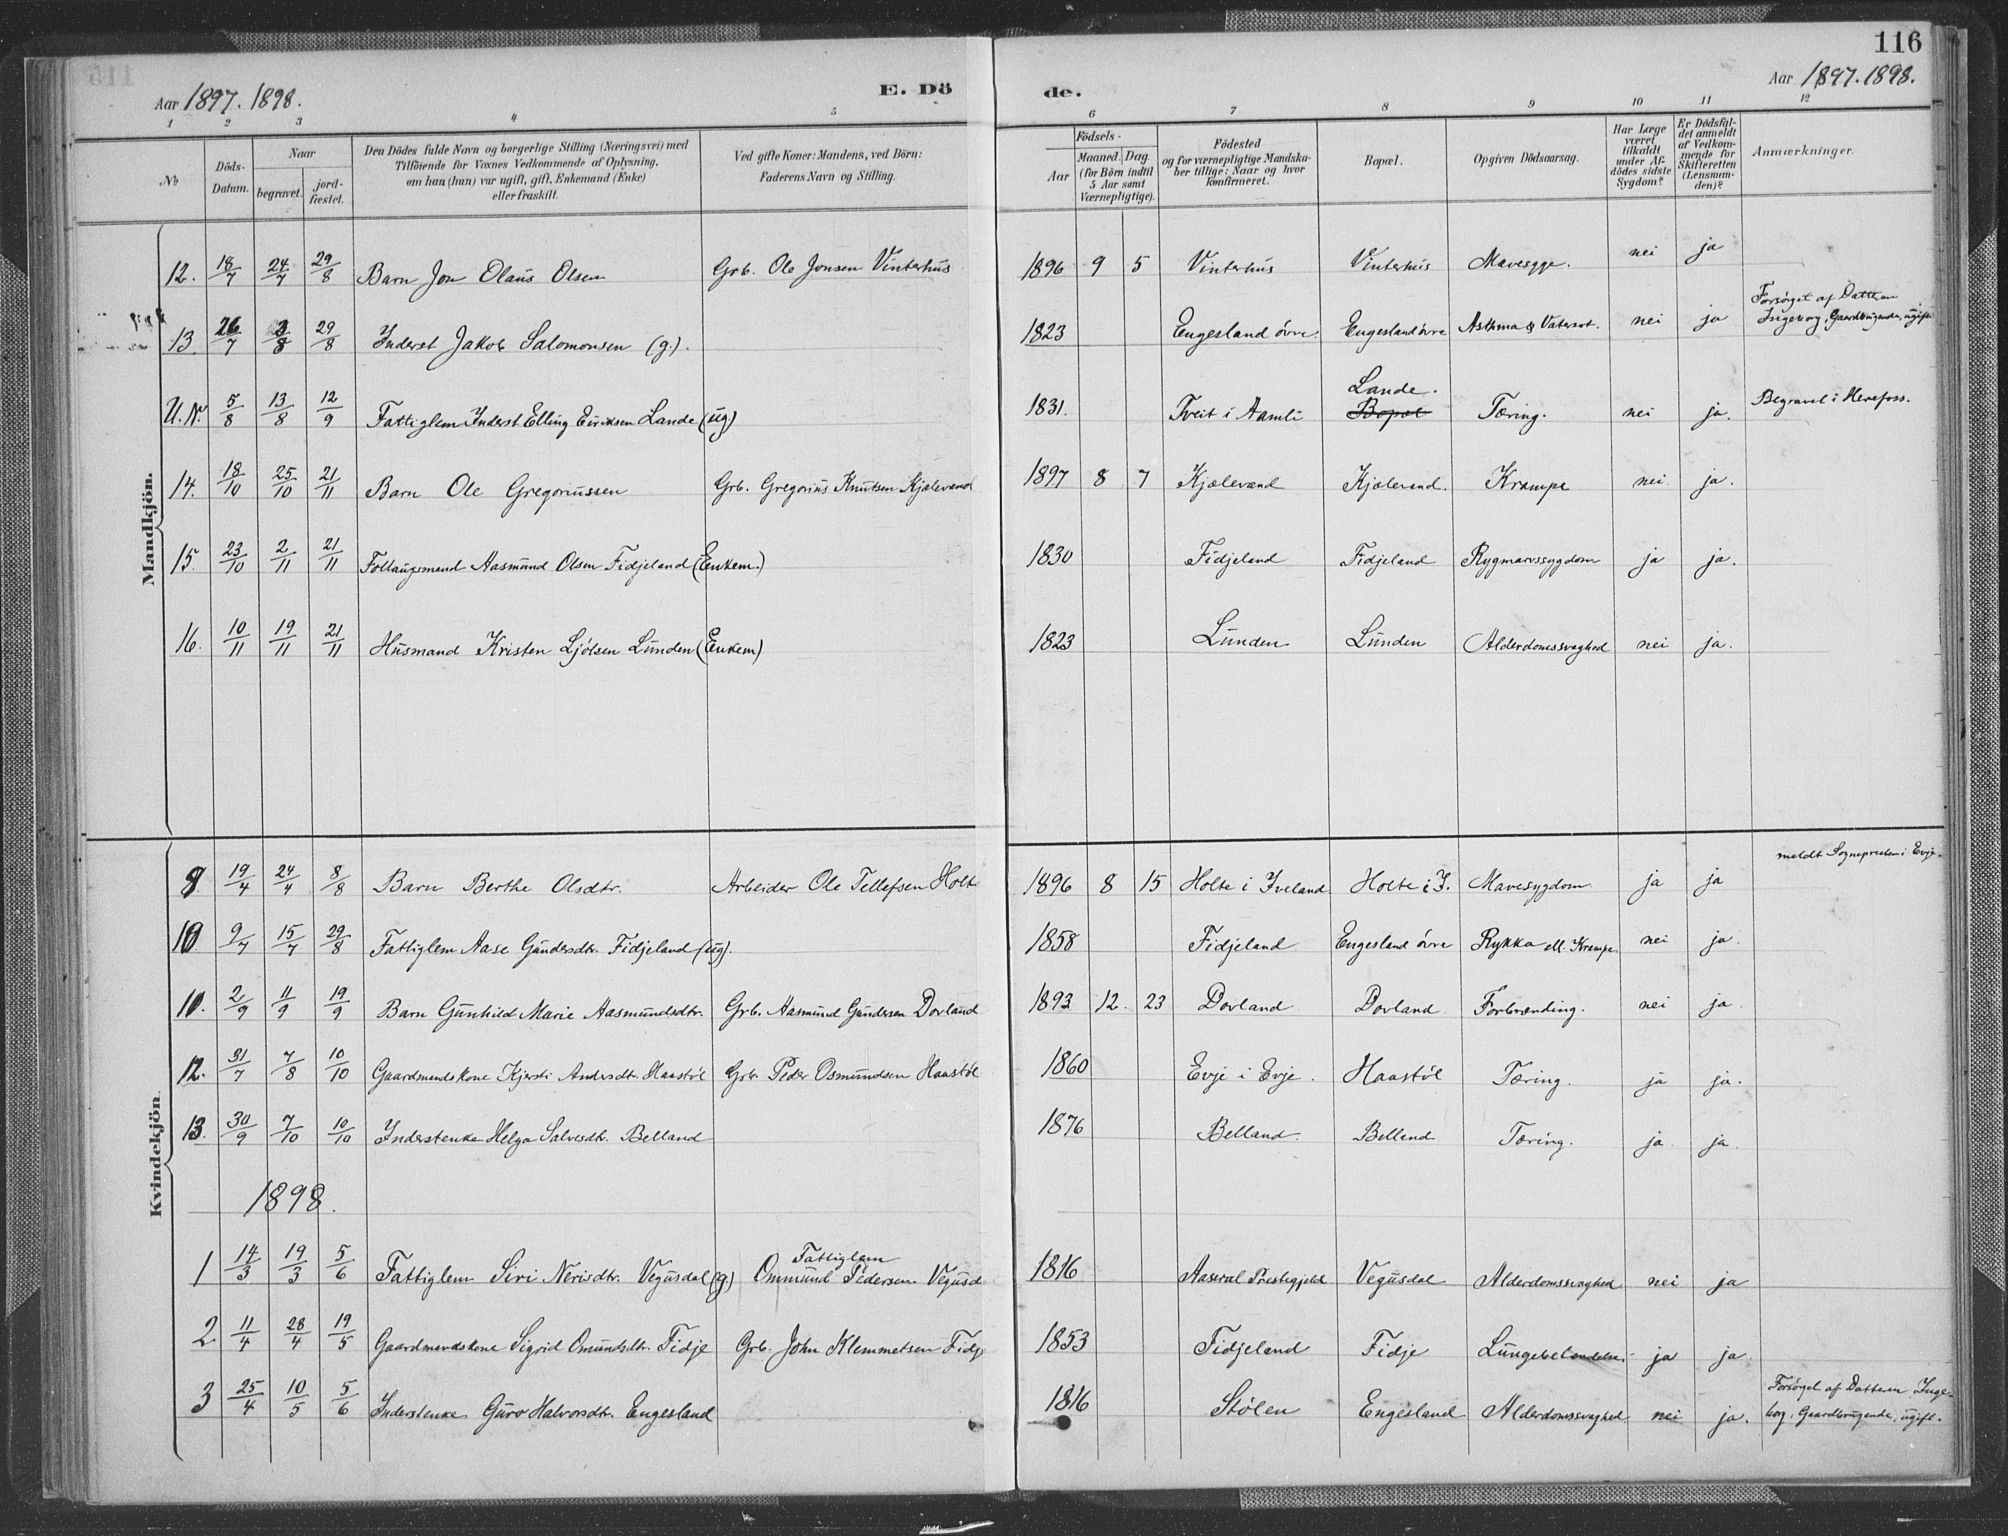 116
Aar 1897. 1898. E. Dö de. Aar 1897. 1898.
1 2 3 4 5 6 7 8 9 10 11 12
No Döds-Datum. Naar begravet. jord-fæstet. Den Dödes fulde Navn og borgerlige Stilling (Næringsvei) med Tilföiende for Voxnes Vedkommende af Oplysning, om han (hun) var ugift, gift, Enkemand (Enke) eller fraskilt. Ved gifte Koner: Mandens, ved Börn: Faderens Navn og Stilling. Födsels- Aar Maaned. Dag. (for Börn indtil 5 Aar samt Værnepligtige). Födested og for værnepligtige Mandska-ber tillige: Naar og hvor konfirmeret. Bopæl. Opgiven Dödsaarsag. Har Læge været tilkaldt under Af-dödes sidste Sygdom? Er Dödsfal-det anmeldt af Vedkom-mende for Skifteretten (Lensman-den)? Anmærkninger.
Mandkjön.
12. 18/7 24/7 29/8 Barn Jon Olaus Olsen Grb. Ole Jonsen Vinterhus 1896 9 5 Vinterhus Vinterhus Mavesyge. nei ja
13. 26/7 3/8 29/8 Inderst Jakob Salomonsen (g.). 1823 Engesland övre. Engesland övre Asthma & Vatersot. nei ja Forsörget af Datteren Ingeborg, Gaardbrugende, ugift
U.N. 5/8 13/8 12/9 Fattiglem Inderst Elling Eiriksen Lande (ug) 1831. Tveit i Aamli Lande. Bopæl Tæring. nei ja. Begravet i Herefoss.
14. 18/10 25/10 21/11 Barn Ole Gregoriussen Grb. Gregorius Knutsen Kjælevand 1897 8 7 Kjælevand Kjælevand. Krampe nei ja.
15. 23/10 2/11 21/11 Follaugsmand Aasmund Olsen Fidjeland (Enkem.) 1830 Fidjeland Fidjeland Rygmarvssygdom ja ja.
16. 10/11 19/11 21/11 Husmand Kristen Ljölsen Lunden (Enkem) 1823 Lunden Lunden Alderdomssvaghed nei ja.
Kvindekjön.
9. 19/4 24/4 8/8 Barn Berthe Olsdtr. Arbeider Ole Tellefsen Holt 1896 8 15 Holte i Iveland Holte i I. Mavesygdom ja ja meldt Sognepresten i Evje.
10 9/7 15/7 29/8 Fattiglem Aase Gundersdtr. Fidjeland (ug). 1858 Fidjeland Engesland övre Rykka ell. Krampe nei ja.
10. 2/9 11/9 19/9 Barn Gunhild Marie Aasmundsdtr. Grb. Aasmund Gundersen Dovland 1893 12. 23 Dovland Dovland Forbrænding. nei ja.
12. 31/7 7/8 10/10 Gaardmandskone Kjersti Andersdtr. Haastöl Grb. Peder Osmundsen Haastöl 1860 Evje i Evje. Haastöl Tæring. ja ja.
13. 30/9 7/10 10/10 Inderstenke Helga Salvesdtr. Belland 1876 Belland. Belland Tæring. ja ja.
1898.
1 14/3 19/3 5/6 Fattiglem Siri Nerisdtr. Vegusdal (g) Fattiglem Ommund Pedersen Vegusd 1816 Aaseral Prestegjeld Vegusdal Alderdomssvaghed nei ja
2 11/4 28/4 19/5 Gaardmandskone Sigrid Omundsdtr. Fidje Grb. John Klemmetsen Fidj 1853 Fidjeland Fidje Lungebetændelse. ja ja
3 25/4 10/5 5/6 Inderstenke Guro Halvorsdtr. Engesland 1816 Stölen Engesland Alderdomssvaghed nei ja. Forsörget af Datteren Inge-borg, Gaardbrugende, ugift.